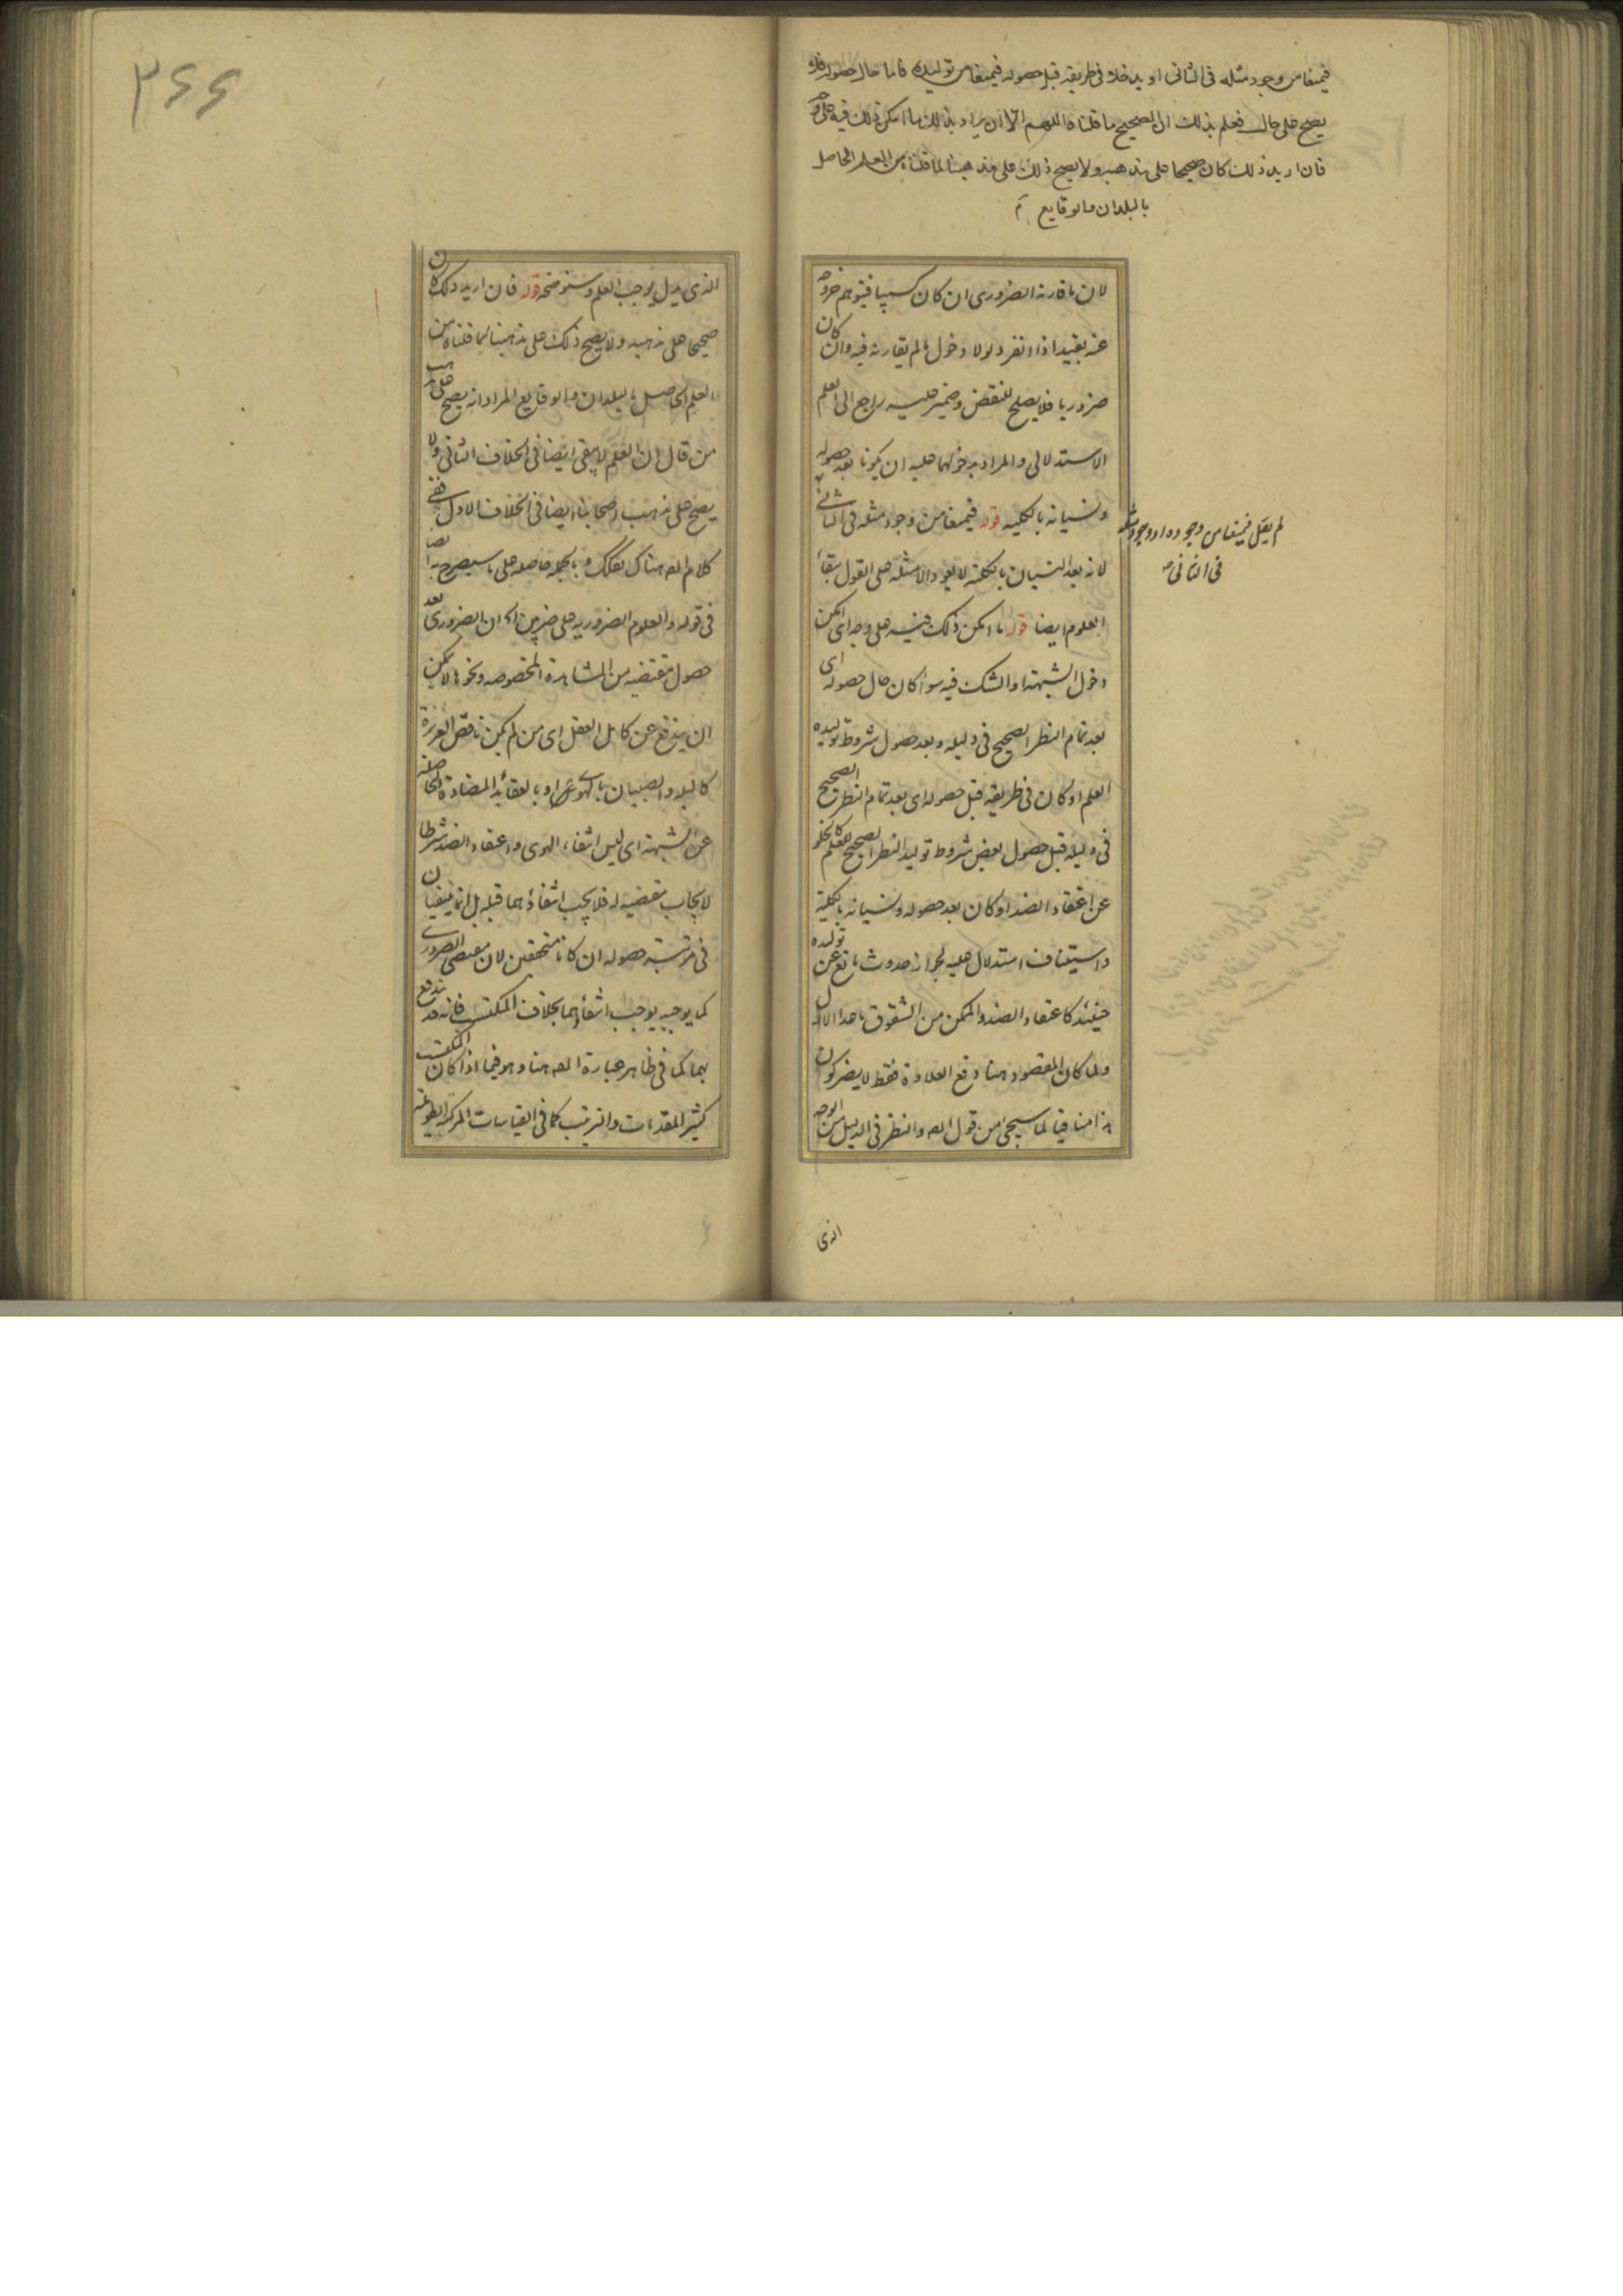 فيمنعا من وجود مثله في الثاني او يدخلا في طريقه قبل حصوله فيمنعا من توليده فاما حال حصوله فلا
يصح على حال فعلم بذلك ان الصحيح ما قلناه اللهم الا ان يراد بذلك ما امكن ذلك فيه على وجه
فان اريد ذلك كان صحيحا على مذهبه ولا يصح ذلك على مذهبنا لما قلناه من العلم الحاصل
بالبلدان والوقايع
لان ما قارنه الضروري ان كان كسبيا فيتوهم خروجه
عنه بقيد اذا انفرد لولا دخول ما لم يقارنه فيه وان كان
ضروريا فلا يصلح للنقض وضمير عليه راجع الى العلم
الاستدلالي والمراد بدخولهما عليه ان يكونا بعد حصوله
ونسيانه بالكليه قوله فيمنعا من وجود مثله في الثاني
لانه بعد النسيان بالكليه لا يعود الا مثله على القول ببقاء
العلوم ايضا قوله ما امكن ذلك فيه على وجه اي امكن
دخول الشبهة او الشك فيه سواء كان حال حصوله اي
بعد تمام النظر الصحيح في دليله وبعد حصول شروط توليده
العلم او كان في طريقه قبل حصوله اي بعد تمام النظر الصحيح
في دليله قبل حصول بعض شروط توليد النظر الصحيح للعلم كالخلو
عن اعتقاد الضد او كان بعد حصوله ونسيانه بالكلية
واستيناف استدلال عليه لجواز حدوث مانع عن توليده
حينئذ كاعتقاد الضد والممكن من الشقوق ما عدا الاول
ولما كان المقصود هنا دفع العلاوة فقط لا يضر كون
هذا منافيا لما سيجيء من قول المص والنظر في الدليل من الوجه
لم يقل فيمنعا من وجوده او وجود مثله
في الثاني
الذي
٣٤٤
الذي يدل يوجب العلم وسنوضحه قوله فان اريد ذلك كان
صحيحا على مذهبه ولا يصح ذلك على مذهبنا لما قلناه من
العلم الحاصل بالبلدان والوقايع المراد انه يصح على مذهب
من قال ان العلم لا يبقى ايضا في الخلاف الثاني ولا
يصح على مذهب اصحابنا ايضا في الخلاف الاول ففي
كلام المص هناك تفكك وبالجمله حاصله على ما سيصرح به المص
في قوله والعلوم الضروريه على ضربين اه ان الضروري بعد
حصول مقتضيه من المشاهدة المخصوصه ونحوها لا يمكن
ان يندفع عن كامل العقل اي من لم يكن ناقص الغريزة
كالبله والصبيان بالهوى او بالعقائد المضادة الحاصلة
عن الشبهة اي ليس انتفاء الهوى واعتقاد الضد شرطا
لايجاب مقتضيه له فلا يجب انتفاؤهما قبله بل انما ينفيان
في مرتبة حصوله ان كانا متحققين لان مقتضي الضروري
كما يوجبه يوجب انتفاءهما بخلاف المكتسب فانه قد يندفع
بهما كما في ظاهر عبارة المص هنا وهو فيما اذا كان المكتسب
كثير المقدمات والترتيب كما في القياسات المركبة الطويلة